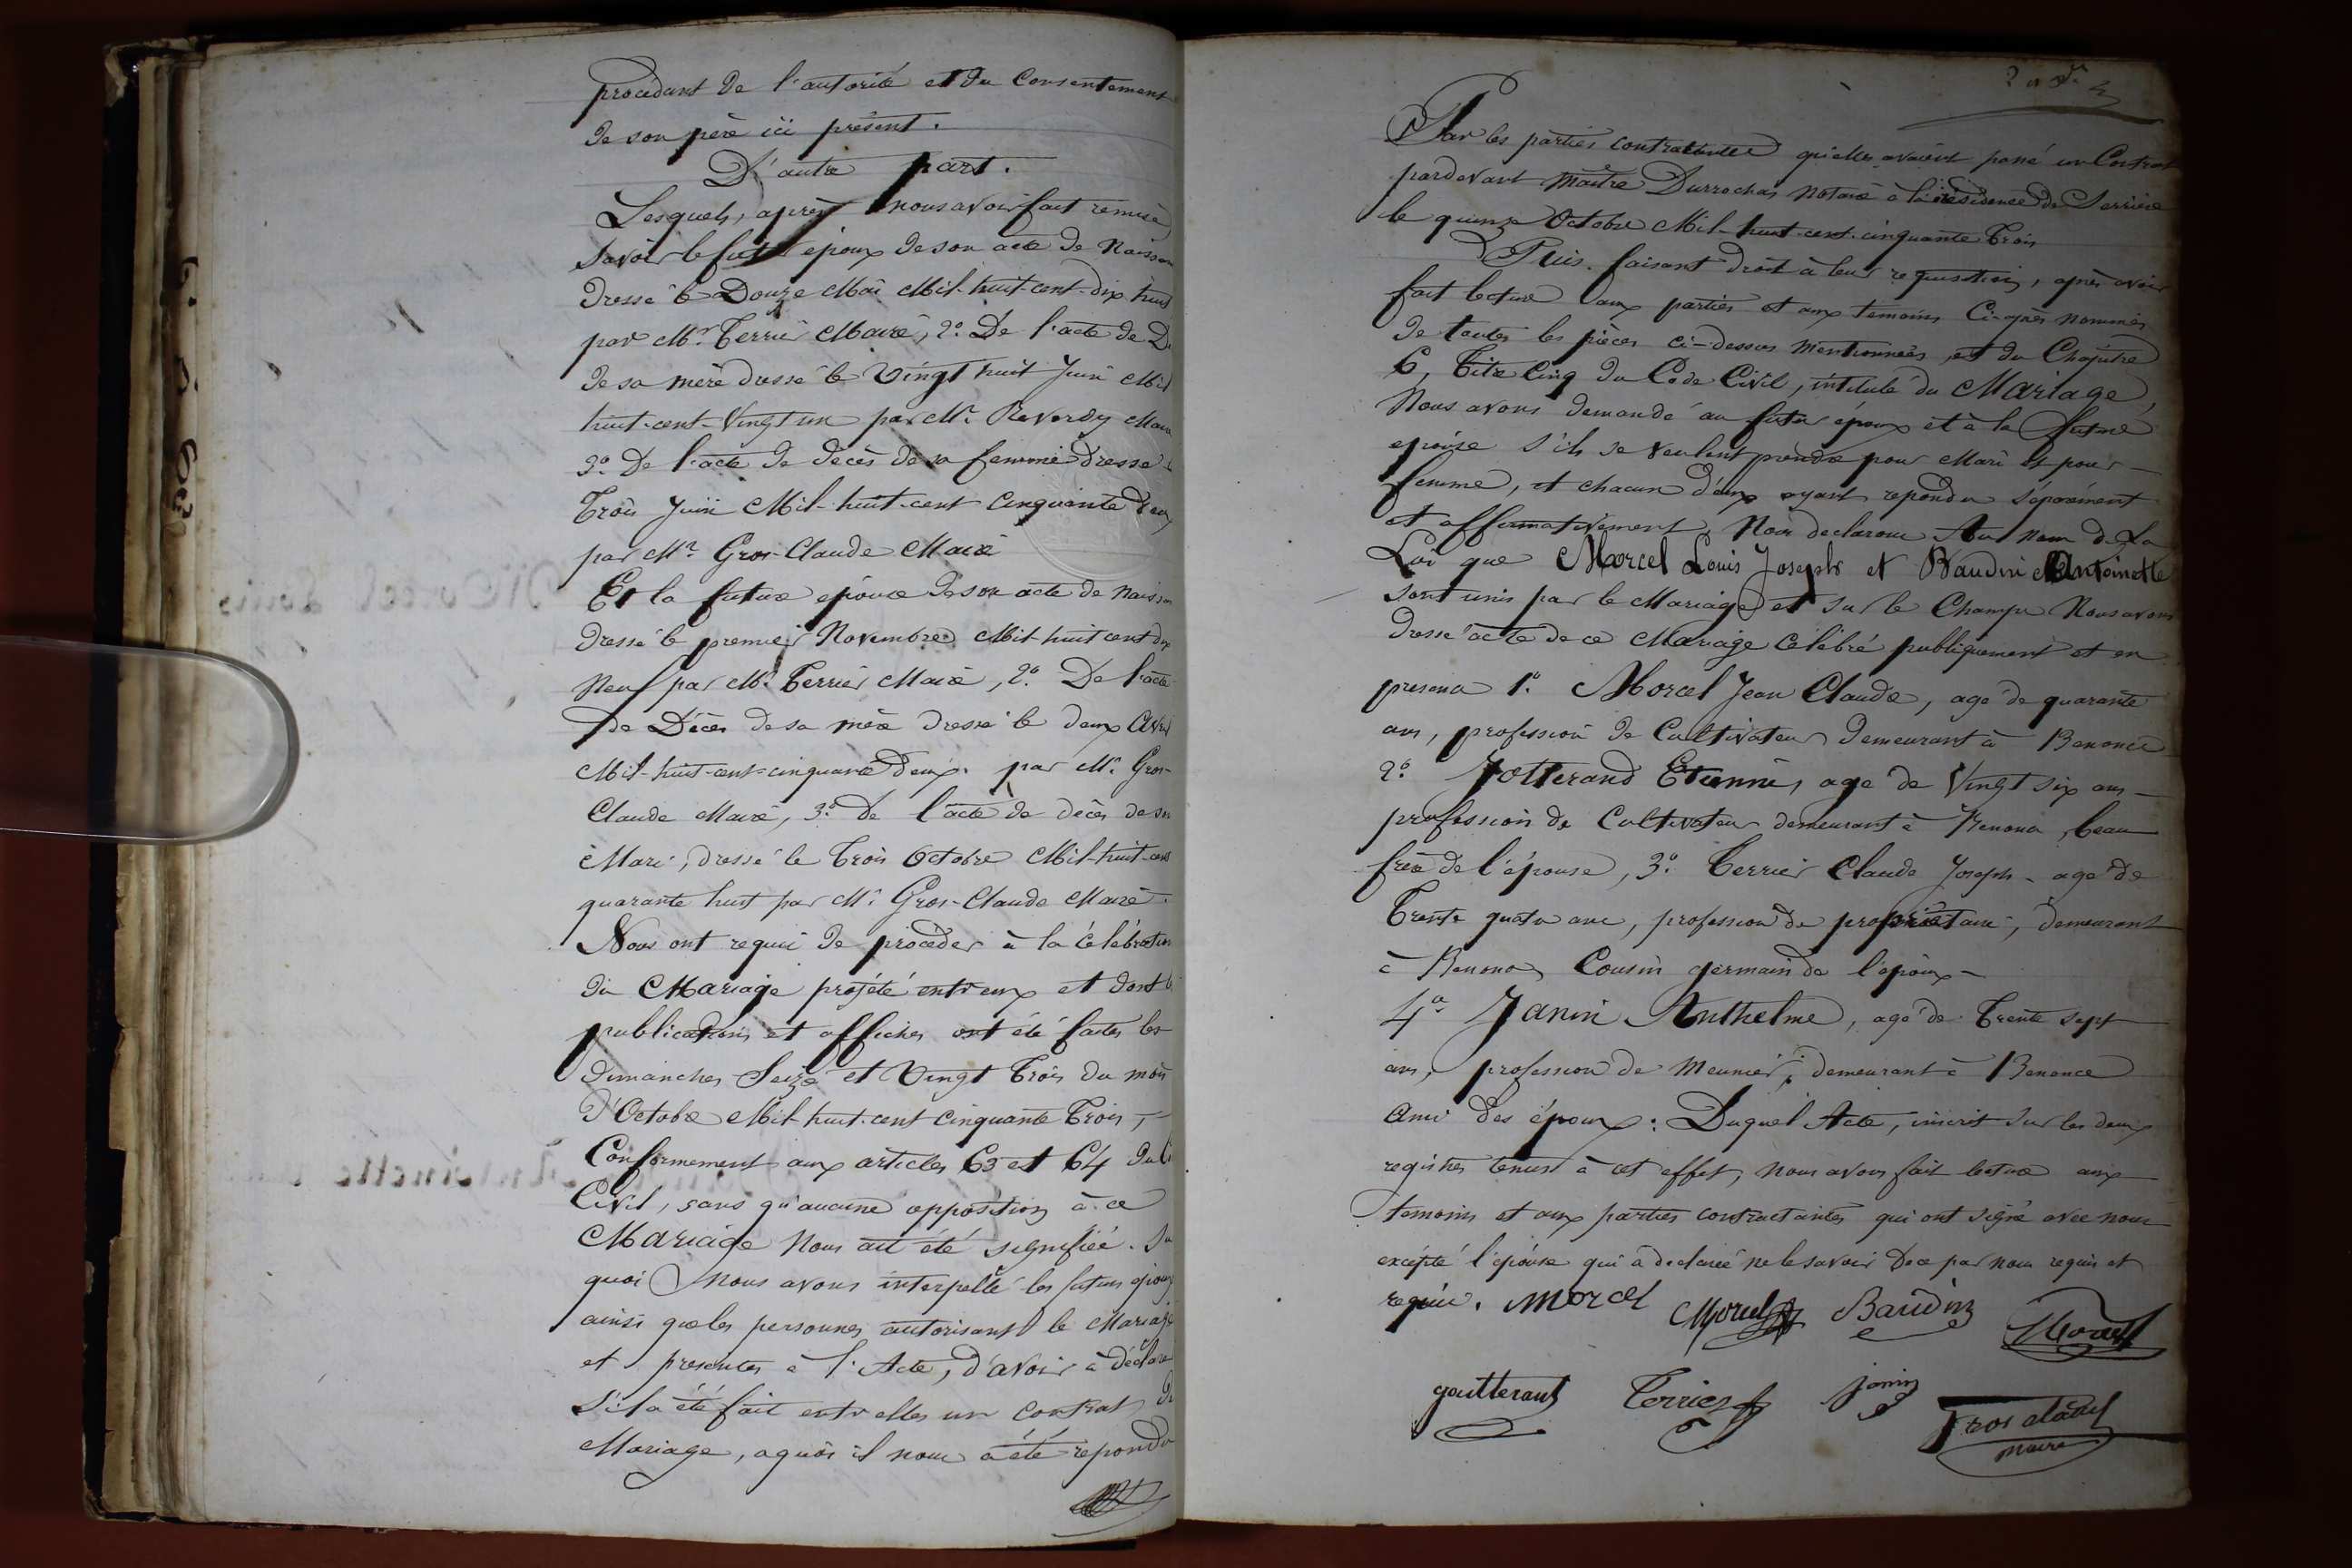 procédant de l'autorité et du Consentement
de son père ici présent.
D'autre part.
Lesquels, après nous avoir fait remise
Savoir le futur époux de son acte de Naissan
Dressé le Douze Mai Mil-huit-cent-dix huit
par Mr. Terrier Maire, 2° De l'acte de D
de sa mère dressé le Vingt huit Juin Mil
huit-cent-Vingt un par Mr. Reverdy Maire
3° De l'acte de décès de sa femme Dressé
Trois Juin Mil-huit-cent Cinquante deux
par Mr. Gros-Claude Maire
Et la future épouse De son acte de Naissan
Dressé le premier Novembre Mil huit cent dix
Neuf par Mr. Terrier Maire, 2° De l'acte
de Décès de sa mère Dressé le deux Avril
Mil-huit-cent-cinquante Deux. par Mr. Gros-
Claude Maire, 3° De l'acte de décès de son
Mari, dressé le Trois Octobre Mil-huit-cent
quarante huit par Mr. Gros-Claude Maire.
Nous ont requis de procéder à la célébration
du Mariage projété entr'eux et dont l
publications et affiches ont été faites les
Dimanches Seize et Vingt Trois du mois
d'Octobre Mil-huit-cent Cinquante Trois,
Conformement aux articles 63 et 64 du C
Civil, sans qu'aucune opposition à ce
Mariage Nous ait été signifiée. Su
quoi Nous avons interpellé les futurs époux
ainsi que les personnes autorisant le Mariage
et présentes à l'Acte, d'avoir à déclare
s'il a été fait entr'elles un Contrat de
Mariage, a quoi il nous a été repondu
Par les parties contractantes qu'elles avaient passé un Contrat
pardevant Maître Durrochat Notaire à la résidence de Serrière
le quinze Octobre Mil-huit-cent-cinquante Trois
Puis, faisant droit à leur requisition, après avoir
fait lecture aux parties et aux témoins Ci-après nommés
de toutes les pièces ci-dessus Mentionnées, et du Chapitre
6, Titre Cinq du Code Civil, intitulé du Mariage,
Nous avons demandé au futur époux et à la future
épouse s'ils se veulent prendre pour Mari et pour
femme, et chacun d'eux ayant repondu séparément
et affirmativement, Nous declarons Au Nom de La
Loi que Morcel Louis Joseph et Baudin Antoinette
sont unis par le Mariage et sur le Champ Nous avons
Dressé acte de ce Mariage Célébré publiquement et en
presence 1° Morcel Jean Claude, agé de quarante
ans, profession de Cultivateur demeurant à Benonce
2° Jotterand Etienne, agé de Vingt six ans
profession de Cultivateur demeurant à Benonce, beau
frère de l'épouse, 3° Terrier Claude Joseph agé de
Trente quatre ans, profession de propriétaire, demeurant
à Benonce, Cousin germain de l'époux
4° Janin Anthelme, agé de Trente sept
ans, profession de Meunier, demeurant à Benonce
ami des époux: Duquel Acte, inscrit sur les deux
registres tenus à cet effet, Nous avons fait lecture aux
temoins et aux parties contractantes qui ont signé avec nous
excepté l'épouse qui a declarée ne le savoir De ce par nous requis et
requise. Morcel Morcel Baudin Morcel
goutterant Terrier janin Gros claude
maire